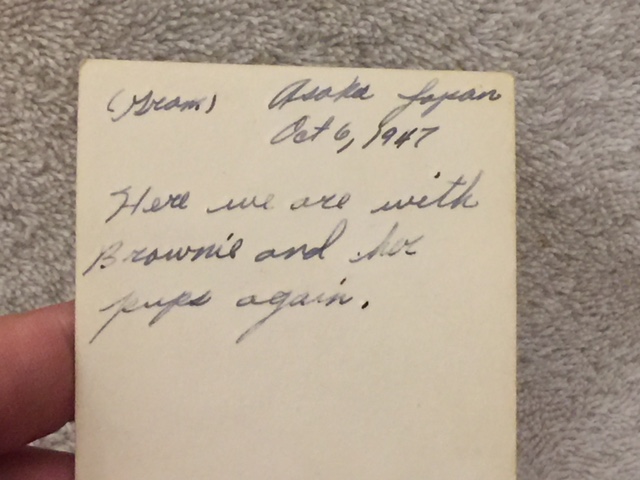 (Gram) Asaka Japan
Oct 6, 1947
Here we are with
Brownie and her
pups again.